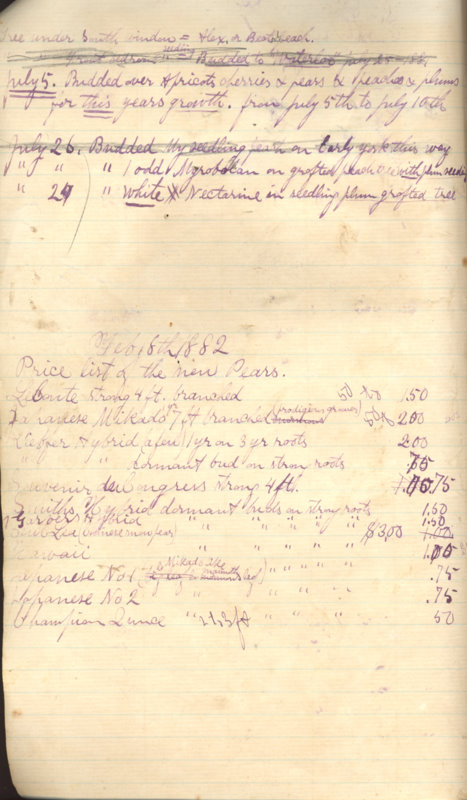 Tree under South window = Alex. or Beach.
Budded to "Waterloo" July 25
July 5. Budded over Apricots cherries & pears & peaches & plums
for this years growth. from July 5th to July 10th
July 26. Budded My seedling peach on Early York this way
" " " 1 odd Myrobolan on grafted peach tree with plum seedling
" 29 " White Nectarine in seedling plum grafted tree
Feb 8th 1882
Price list of the new Pears.
LeConte strong 4 ft. branched 1.50
Japanese Mikado 7 ft branched (prodigious grower) 2.00
Kieffer Hybrid a few 1 yr on 3 yr roots 2.00
" " dormant bud on stron roots 75
Souvenir du Congress strong 4 ft. .75
Smiths Hybrid dormant buds on strong roots 1.50
Garbers Hybrid " " " " " 1.50
$3.00 1.00
Hawaii " " " " "
Japanese No 1 (Mikado like) " " " " .75
Japanese No 2 " " " " .75
Champion Quince " 2 to 3 ft " " 50